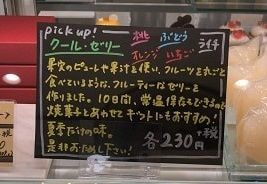 pick up!
クール・ゼリー
桃 ぶどう
オレンジ いちご
ライチ
果実のピューレや果汁を使い、フルーツを丸ごと
食べているような、フルーティーなゼリーを
作りました。10日間、常温保存もできるので
焼菓子とあわせてギフトにもおすすめ!
夏季だけの味。
是非お・ためし下さい!
各230円
+税